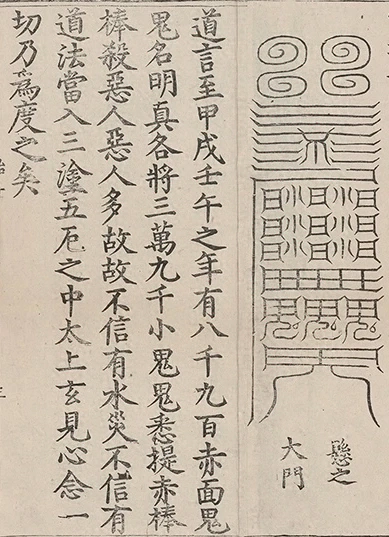 懸之
大門
道言至甲戌壬午之年有八千九百赤面鬼
鬼名明真各將三萬九千小鬼鬼悉提赤棒
棒殺惡人惡人多故故不信有水災不信有
道法當入三塗五厄之中太上玄見心念一
切乃為度之矣